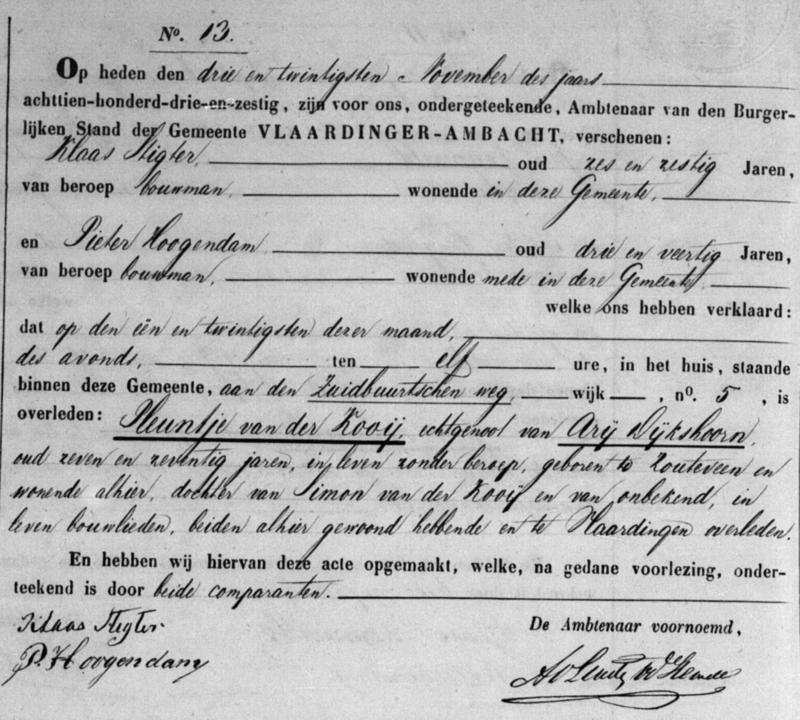 No. 13.
Op heden den drie en twintigsten November des jaars
achttien-honderd-drie-en-zestig, zijn voor ons, ondergeteekende, Ambtenaar van den Burger-
lijken Stand der Gemeente VLAARDINGER-AMBACHT, verschenen:
Klaas Stigter, oud zes en zestig Jaren,
van beroep bouwman, wonende in deze Gemeente,
en Pieter Hoogendam oud drie en veertig Jaren,
van beroep bouwman, wonende mede in deze Gemeente,
welke ons hebben verklaard:
dat op den één en twintigsten dezer maand,
des avonds, ten elf ure, in het huis, staande
binnen deze Gemeente, aan den Zuidbuurtschen weg, wijk , no. 5, is
overleden: Pleuntje van der Kooij, echtgenoot van Arij Dijkshoorn,
oud zeven en zeventig jaren, in leven zonder beroep, geboren te Zouteveen en
wonende alhier, dochter van Simon van der Kooij en van onbekend, in
leven bouwlieden, beiden alhier gewoond hebbende en te Vlaardingen overleden.
En hebben wij hiervan deze acte opgemaakt, welke, na gedane voorlezing, onder-
teekend is door beide comparanten.
Klaas Stigter
De Ambtenaar voornoemd,
P. Hoogendam